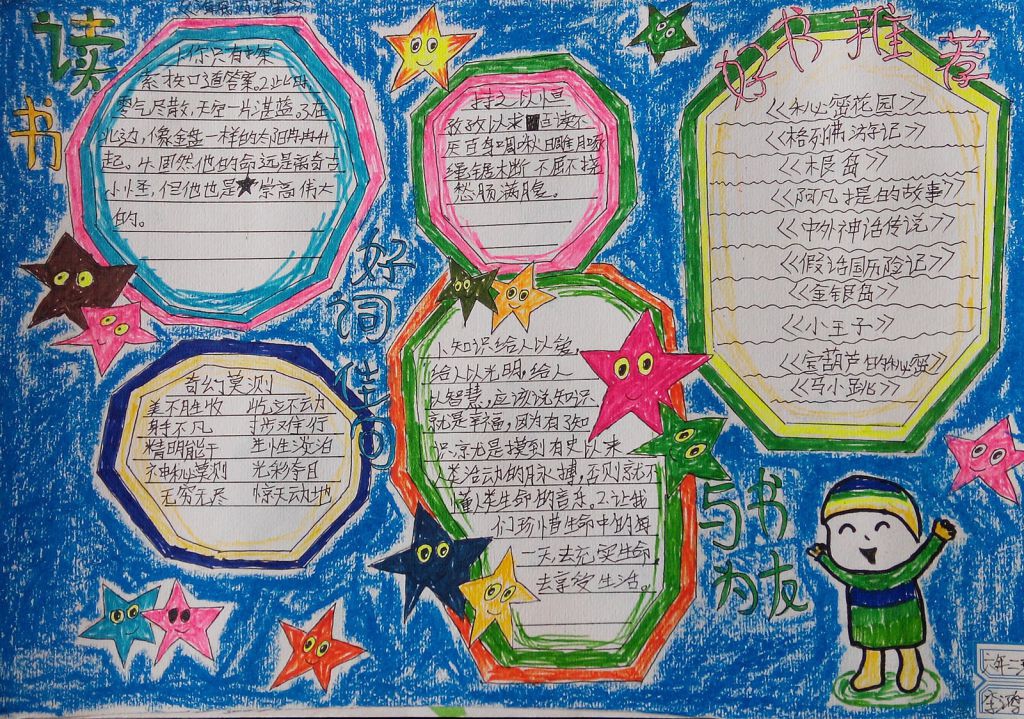 读书
1.你只有探
索校口道答案。2.此时
雾气尽散,天空一片湛蓝。3.在
北边,像金盘一样的太阳冉冉升
起。4.固然他的命远是离奇古
小怪,但他也是★崇高伟大
的。
持之以恒
孜孜以求 百读不
厌 百身
绳锯木断 不屈不挠
愁肠满腹。
好书推荐
《秘密花园》
《格列佛游记》
《木艮岛》
《阿凡提的故事》
《中外神话传说》
《假话国历险记》
《金银岛》
《小王子》
《宝葫芦的秘密》
《马小跳》
好词佳句
奇幻莫测
美不胜收 屹立不动
身手不凡
精明能干 生性淡泊
神秘莫测 光彩夺目
无穷无尽 惊天动地
1.知识给人以爱,
给人以光明,给人
以智慧,应该说知识
就是幸福,因为有了知
识,就是摸到有史以来
人类活动的脉搏,否则就不
懂人类生命的音乐。2.让我
们珍惜生命中的每
一天,去充实生命,
去享受生活。
与书
为友
六年二
李鸿